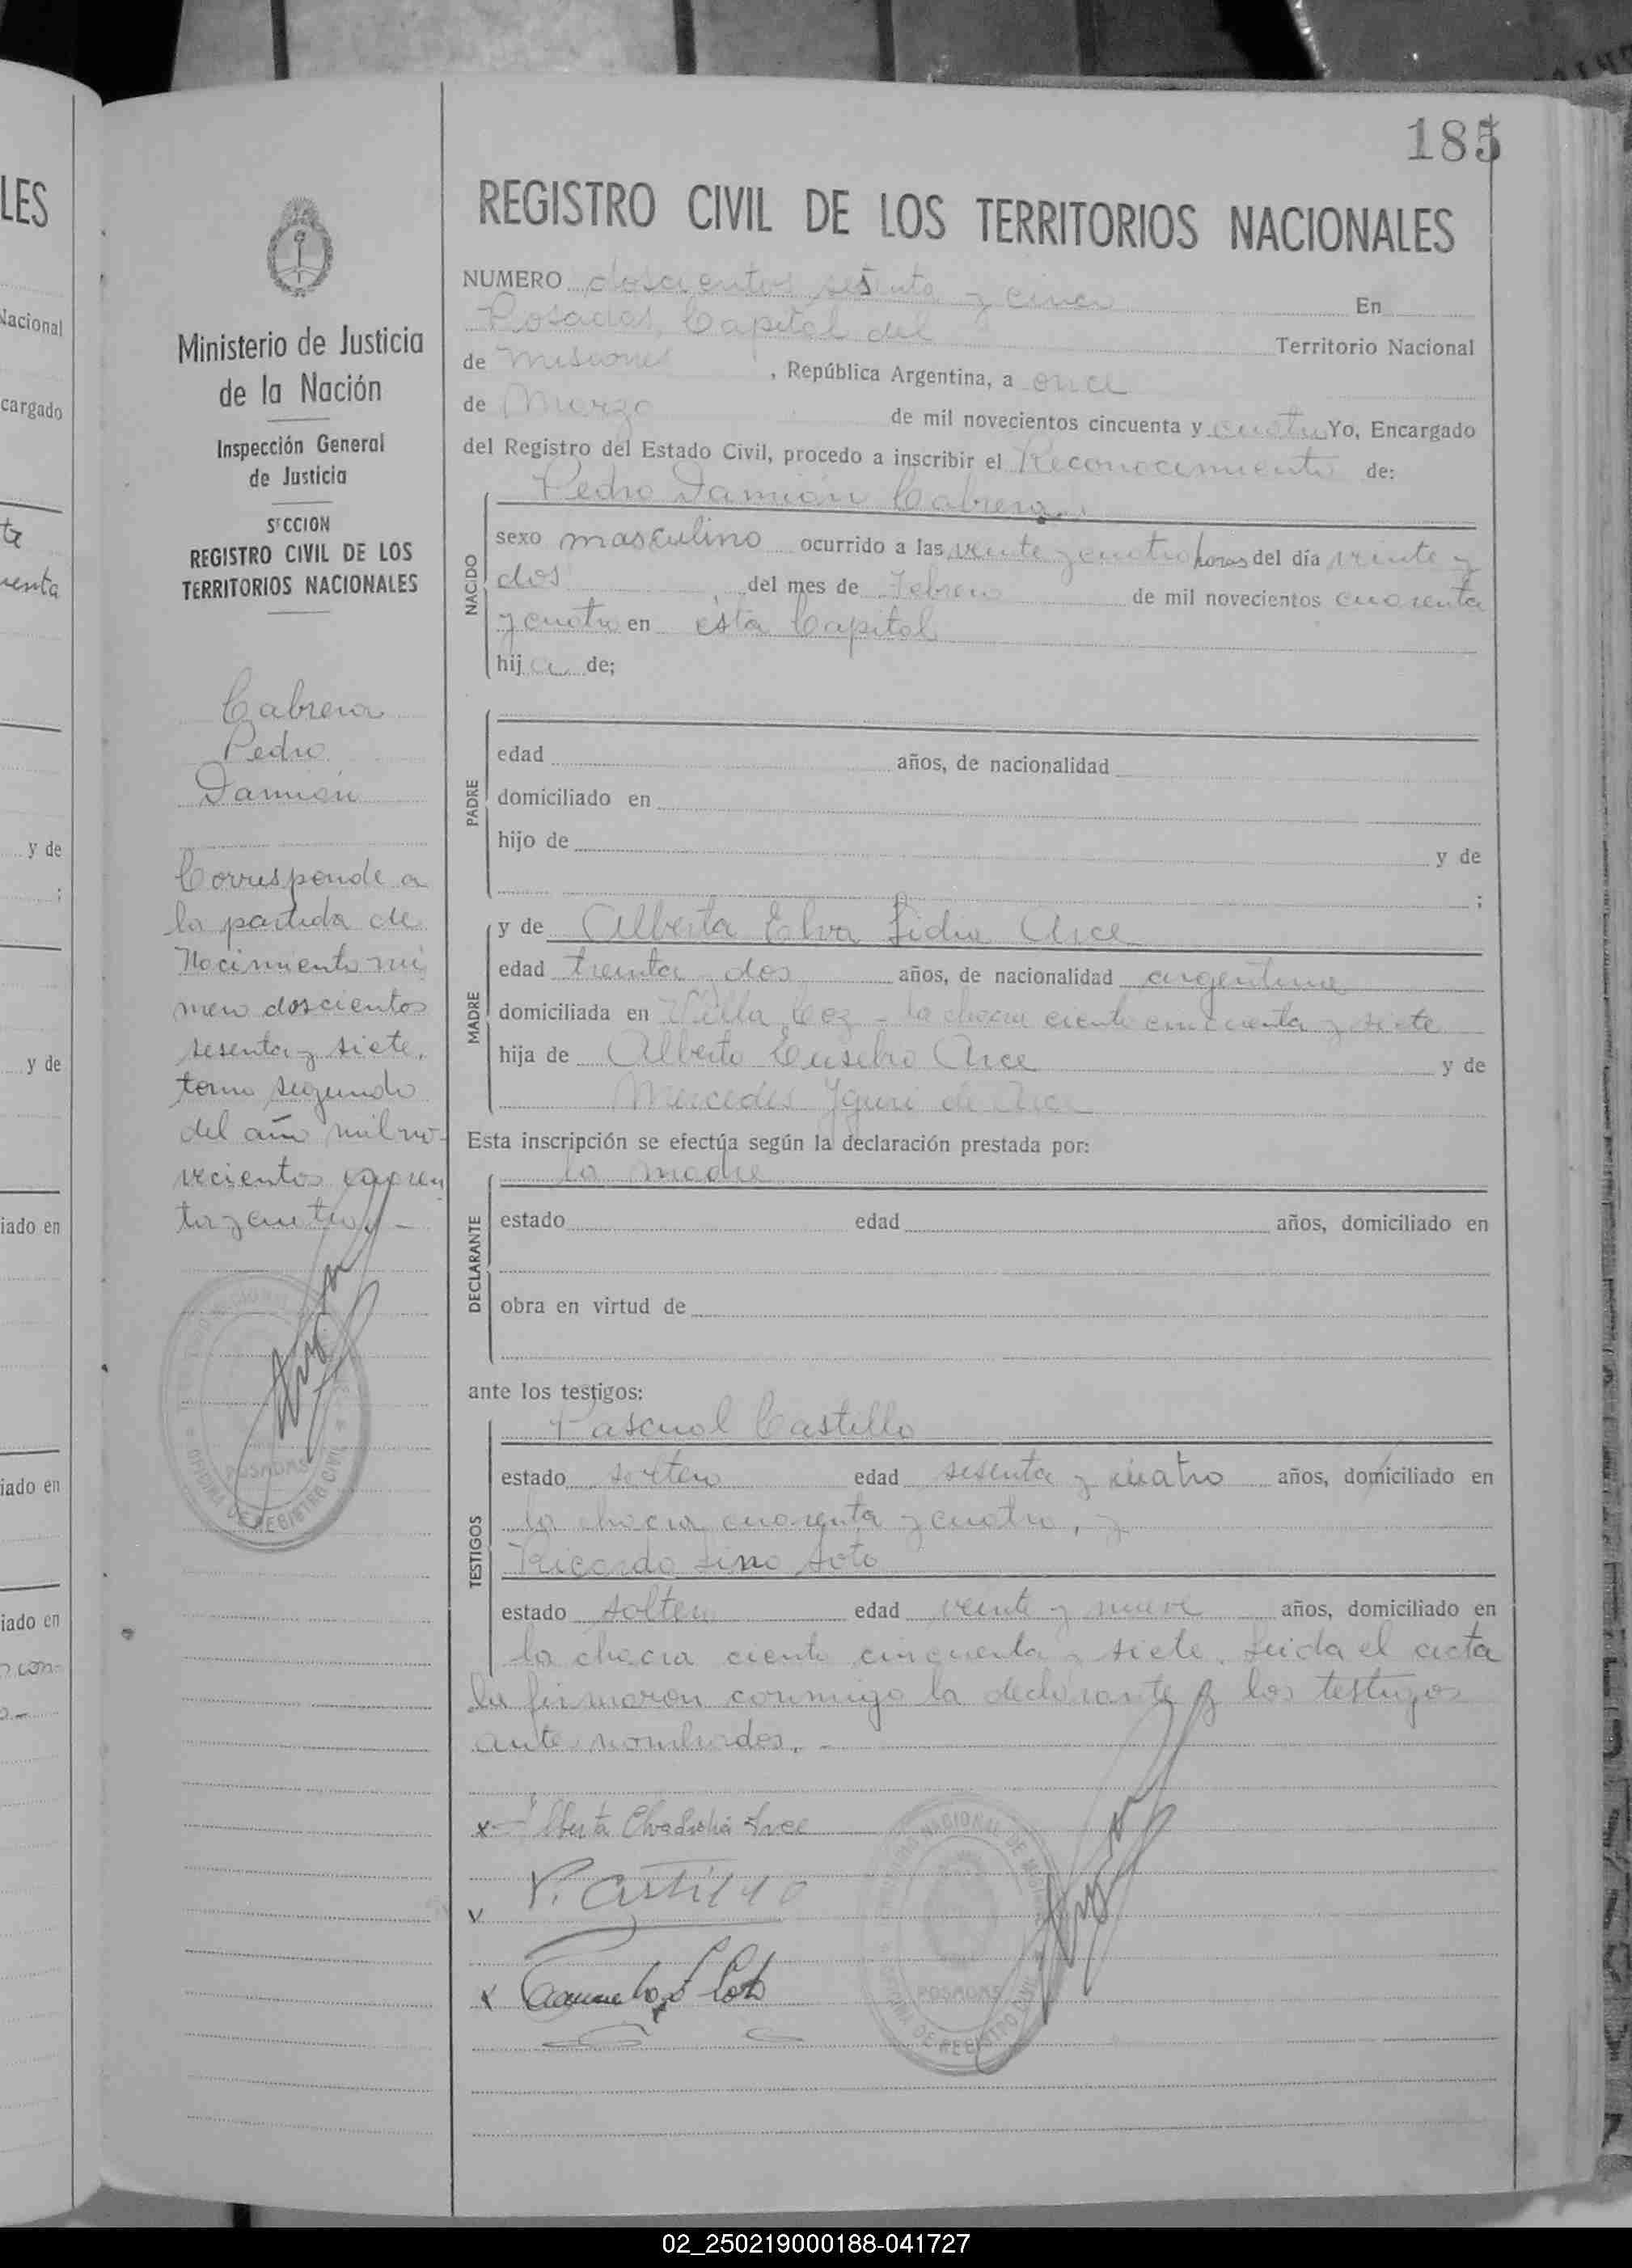 185
REGISTRO CIVIL DE LOS TERRITORIOS NACIONALES
Ministerio de Justicia
de la Nación
Inspección General
de Justicia
SECCION
REGISTRO CIVIL DE LOS
TERRITORIOS NACIONALES
Cabrera
Pedro
Damián
Corresponde a
la partida de
Nacimiento nú
mero doscientos
sesenta y siete,
tomo segundo
del año mil no-
vecientos cuaren
ta y cuatro. -
NUMERO doscientos sesenta y cinco En
Posadas, Capital del Territorio Nacional
de Misiones , República Argentina, a once
de Marzo de mil novecientos cincuenta y cuatro Yo, Encargado
del Registro del Estado Civil, procedo a inscribir el Reconocimiento de:
Pedro Damián Cabrera.
NACIDO
sexo masculino ocurrido a las veinte y cuatro horas del día veinte y
dos , del mes de Febrero de mil novecientos cuarenta
y cuatro en esta Capital
hija de;
PADRE
edad años, de nacionalidad
domiciliado en
hijo de y de
;
MADRE
y de Alberta Elva Lidia Arce
edad treinta dos años, de nacionalidad argentina
domiciliada en Villa - la chacra ciento cincuenta y siete
hija de Alberto Eusebio Arce y de
Mercedes de Arce
Esta inscripción se efectúa según la declaración prestada por:
la madre
DECLARANTE
estado edad años, domiciliado en
obra en virtud de
ante los testigos:
TESTIGOS
Pascual Castillo
estado soltero edad sesenta y cuatro años, domiciliado en
la chacra cuarenta y cuatro, y
Ricardo Lino Soto
estado soltero edad veinte y nueve años, domiciliado en
la chacra ciento cincuenta y siete. Leída el acta
la firmaron conmigo la declarante y los testigos
antes nombrados. -
x Alberta Arce
P. Castillo
x Soto
POSADAS
OFICINA DE REGISTRO CIVIL
NACIONAL DE
POSADAS
DE REGISTRO CIVIL
LES
Nacional
cargado
y de
;
y de
iado en
iado en
iado en
02_250219000188-041727